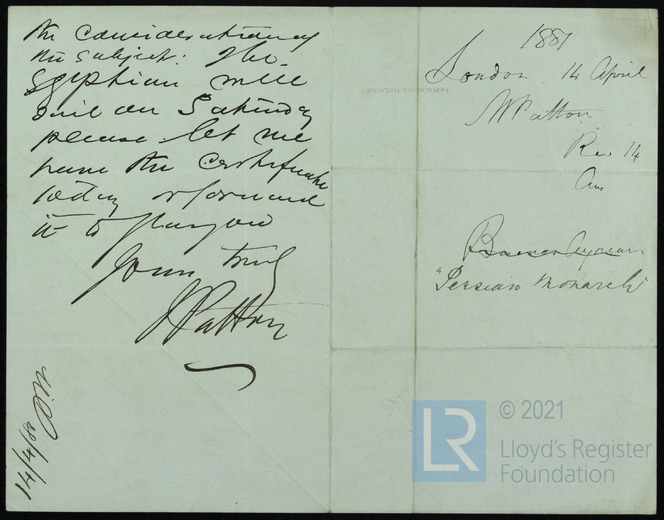 the consideration of
the subject: The
Egyptian will
sail on Saturday
please let me
have the certificate
today or forward
it to Glasgow
Yours truly
J Patton
14/4/81
1881
London 14 April
W Patton
Rec 14
Ans
"Persian Monarch"
LR
© 2021
Lloyd's Register
Foundation